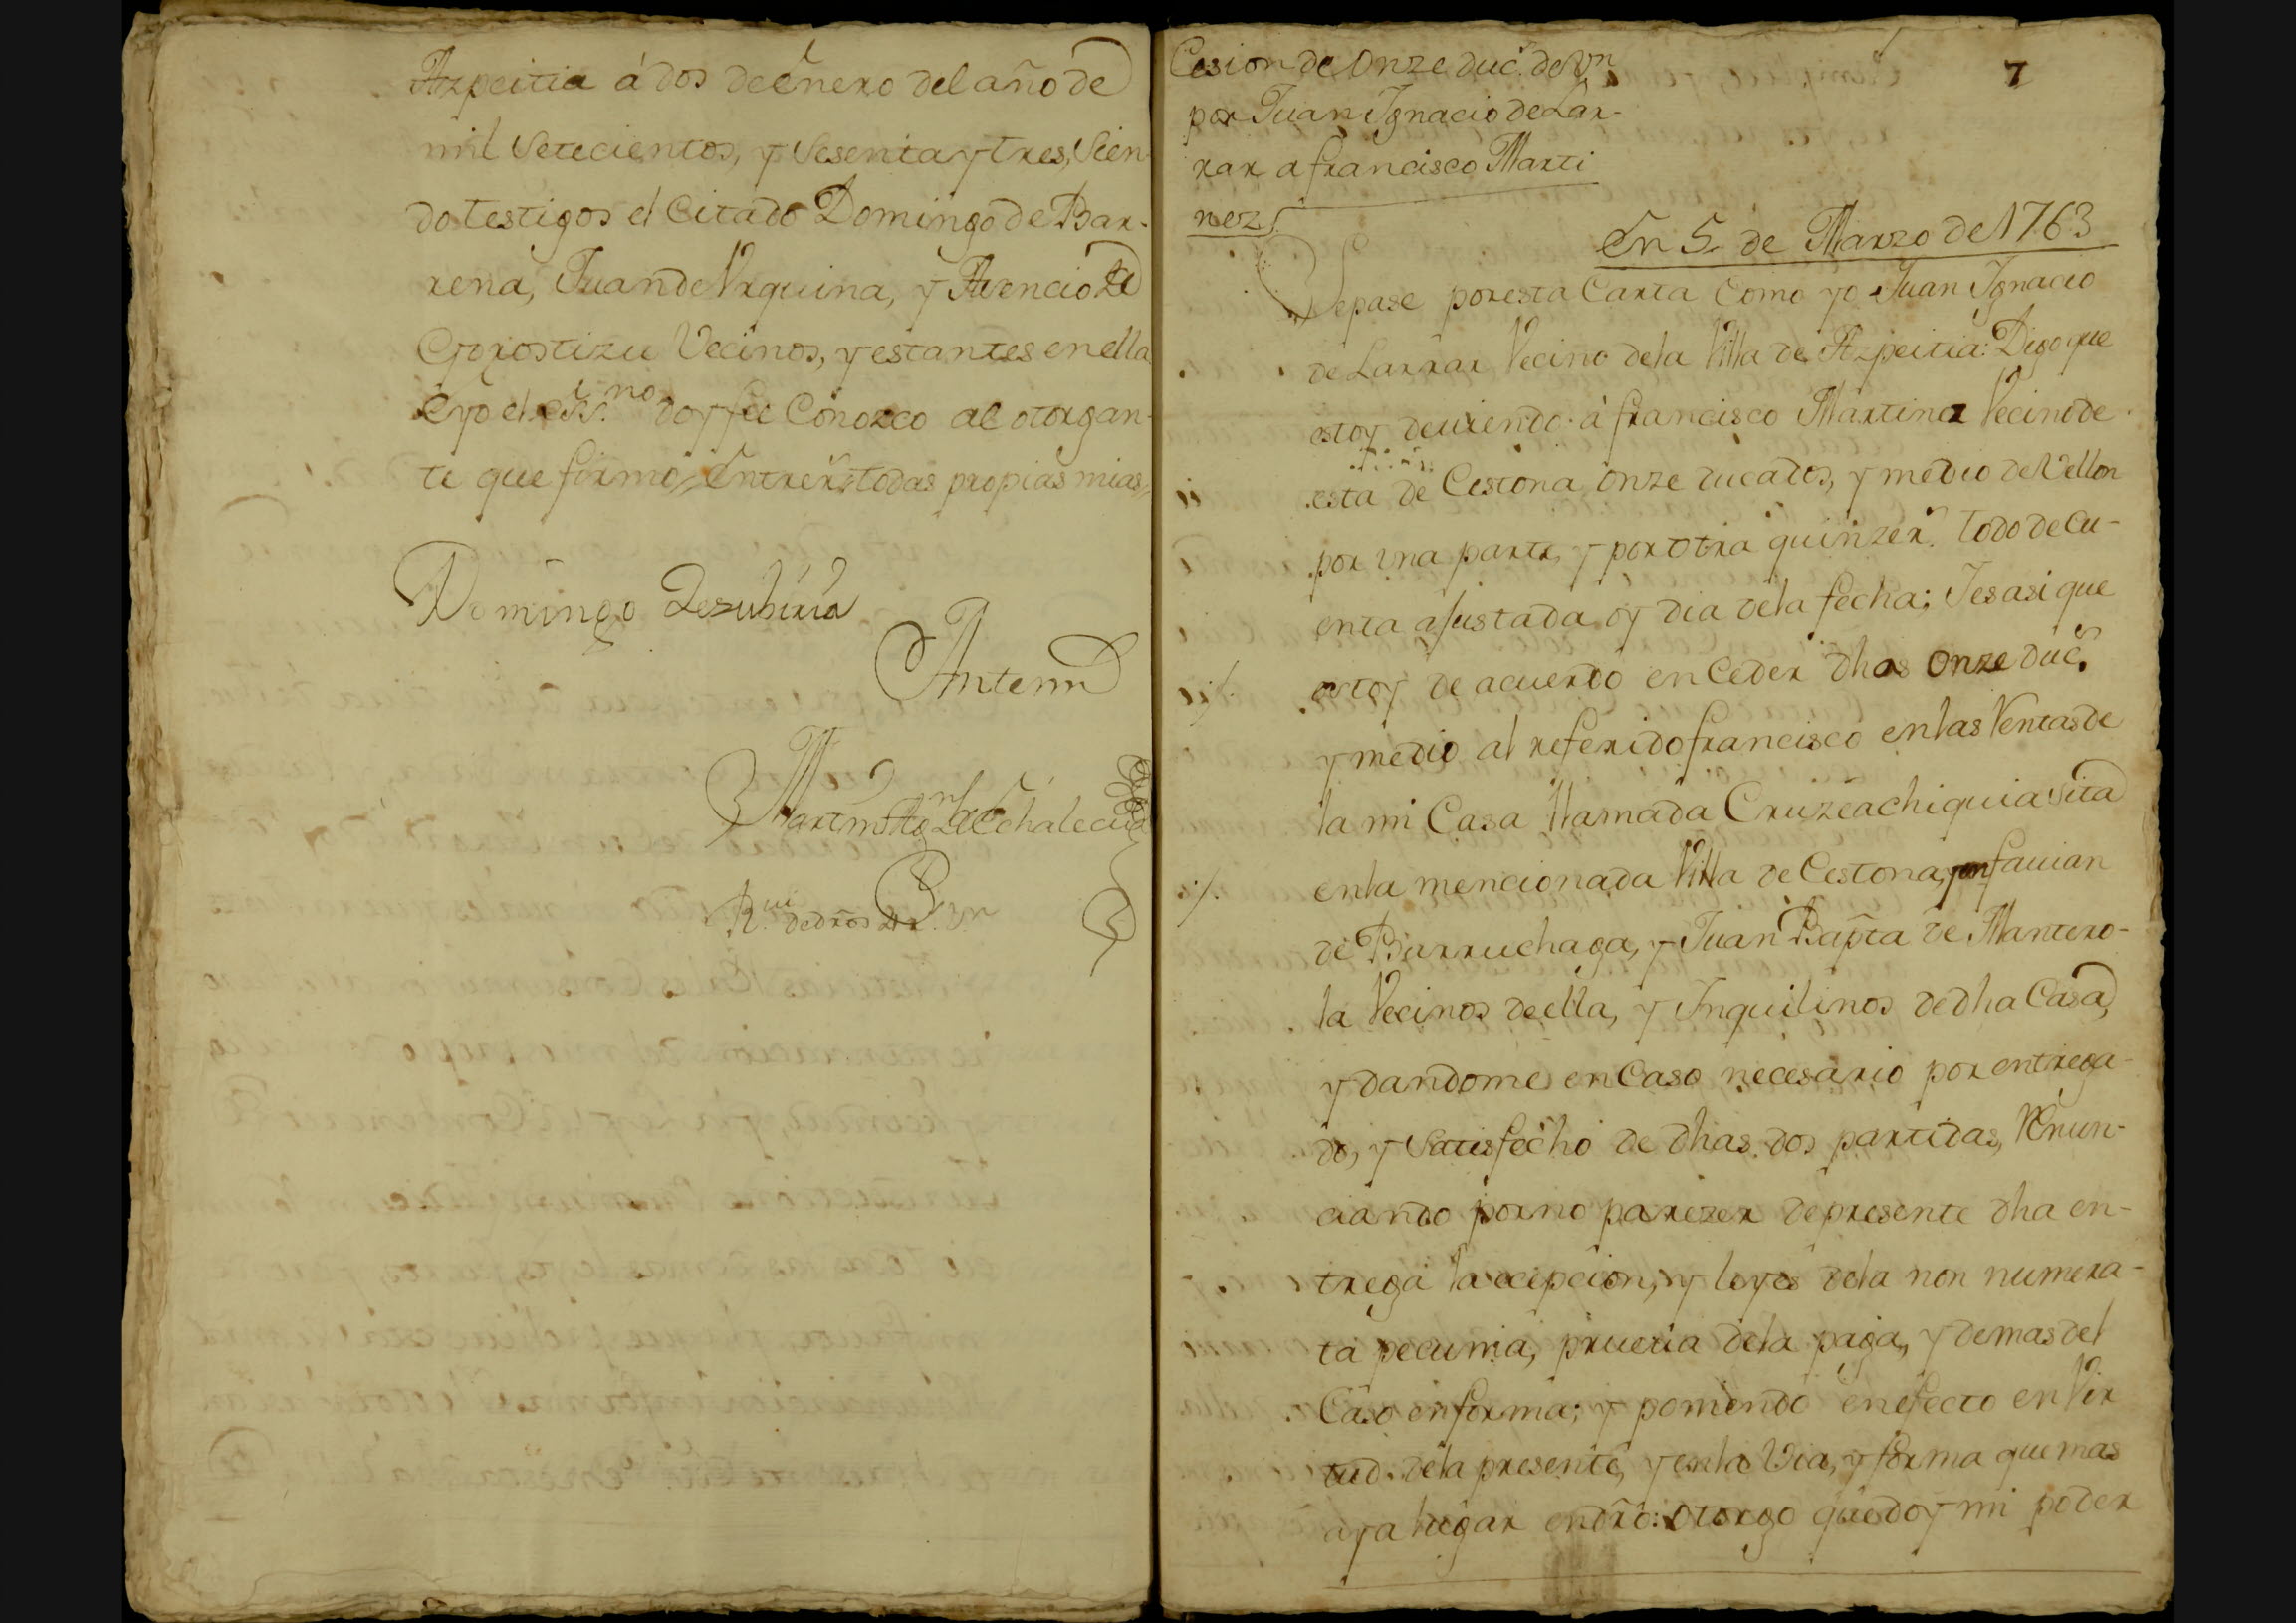 Azpeitia á dos de Enero del año de
mil Setecientos, y Sesenta y tres, Sien-
do testigos el Citado Domingo de Bar-
rena, Juan de Vrquina, y Asencio de
Gorostizu Vecinos, y estantes en ella
E yo el ess.no doy fee Conozco al otorgan-
te que firmo, Entreṙ todas propias mias,
Domingo Dezubiria
Antemi
Martin Ag.n de Echalecua
R.ui de dros
Cesion de Onze duc.s de Vn
por Juan Ignacio de Lar-
rar a francisco Marti
nez
7
En 5 de Marzo de 1763
Sepase por esta Carta Como yo Juan Ignacio
de Larrar Vecino de la Villa de Azpeitia: Digo que
estoy deuiendo á francisco Martinez Vecino de
esta de Cestona onze ducados, y medio de Vellon
por vna parte, y por otra quinze r.s todo de Cu-
enta ajustada oy dia de la fecha; Y es asi que
estoy de acuerdo en Ceder dhos Onze duc.s
y medio al referido francisco en las Rentas de
la mi Casa llamada Cruzeachiquia sita
en la mencionada Villa de Cestona, en fauian
de Barruchaga, y Juan Bap̃ta de Mantero-
la Vecinos de ella, y Inquilinos de dha Casa,
y dandome en Caso necesario por entrega-
do, y Satisfecho de dhas dos partidas, Renun-
ciando por no parezer de presente dha en-
trega la ecepcion, y leyes de la non numera-
ta pecunia, prueua de la paga, y demas del
Caso en forma; y poniendo en efecto en Vir
tud de la presente, y en la Via, y forma que mas
aya lugar en dr̃o: Otorgo que doy mi poder